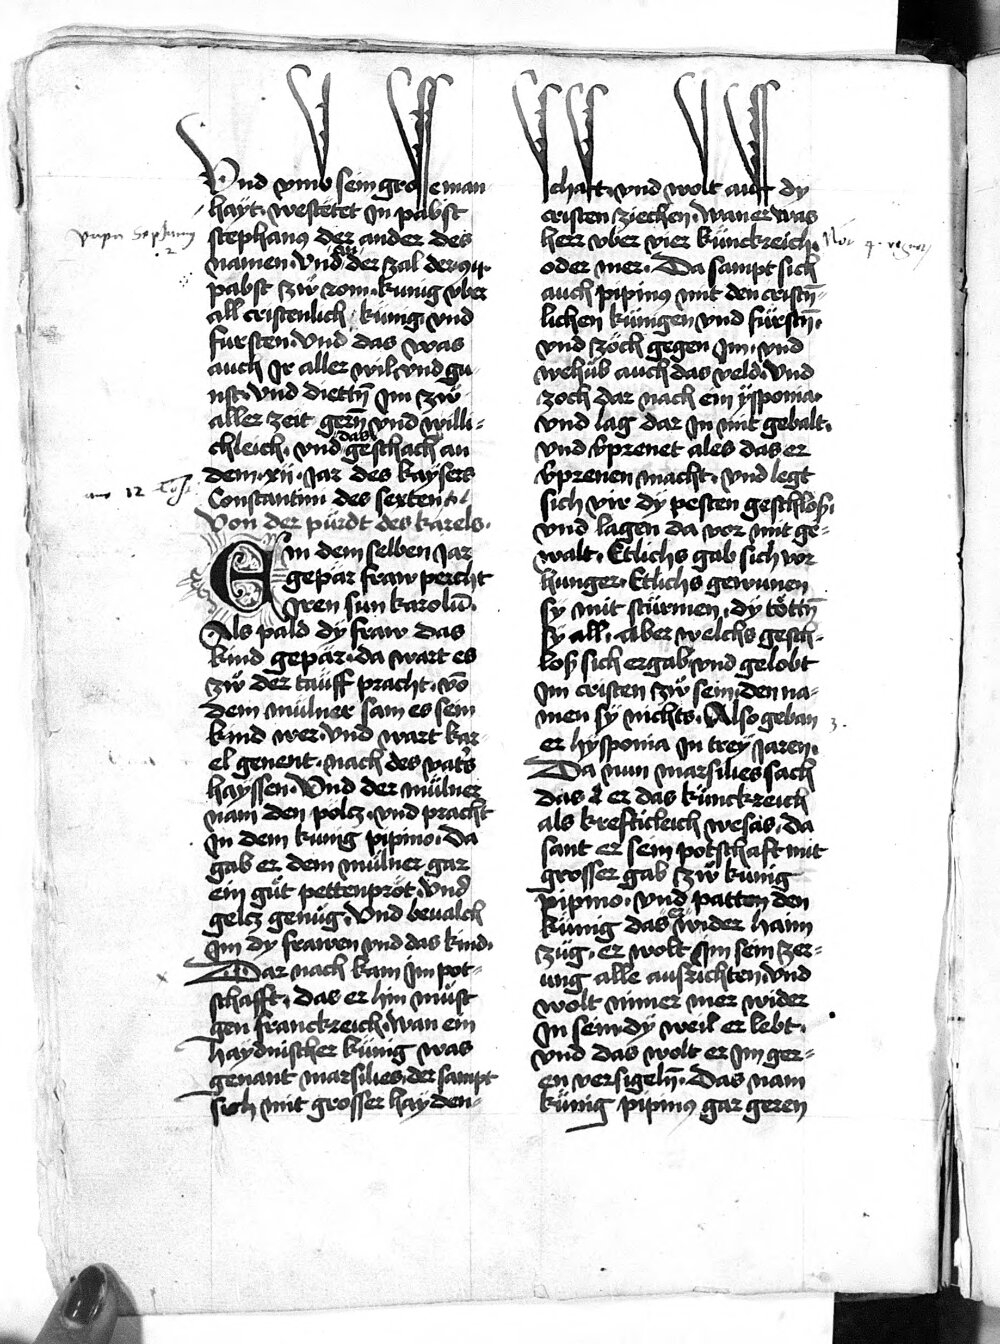 Vnd vmb sein grosse man
hayt. westetet In pabst
stephanus der ander des
namen. Vnd der zal der
pabst zw rom. kunig vber
all cristenlich künig vnd
fursten. Vnd das was
auch Ir aller wil vnd gu
nst. Vnd diettn̄ Im zw
aller zeit gern̄ vnd willi=
chleich. vnd das geschach an
dem .xii. Jar des kaysers
Constantini des sexten.
Von der pürdt des karels.
E in dem selben Jar
gepar fraw percht
Iren sun karolū.
Als pald dy fraw das
kind gepar. da wart es
zw der tauff pracht. vō
dem mülner sam es sein
kind wer. vnd wart kar=
el genent. nach des vaters
hayssen. Vnd der mülner
nam den polcz. vnd pracht
In dem kunig pipino. Da
gab er dem mülner gar
ein güt pettenpröt. Vnd
gelcz genüg. Vnd beualch
Im dy frawen vnd das kind.
Dar nach kam Im pot=
schafft. Das er hin müst
gen franckreich. Wan ein
haydnischer künig was
genant marsilies. der sampt
sich mit grosser hayden=
schaft. vnd wolt auf dy
cristen ziechen. Wan er was
herr vber vier künckreich.
oder mer. Da sampt sich
auch pipinus mit den cristn̄=
lichen künigen vnd fürstn̄.
vnd zöch gegen Im. vnd
wehüb auch das veld. Vnd
zoch dar nach ein ysponia.
vnd lag dar In mit gebalt.
vnd v̈prenet ales das er
v̈prenen macht. vnd legt
sich vir dy pesten geschloß.
vnd lagen da vor mit ge=
walt. Etlichs gab sich vor
hunger. Etlichs gewunen
sy mit stürmen. dy töttn̄
sy all. Aber welchs gesch=
loß sich ergab. vnd gelobt
Im cristen zw sein. den na=
men sy nichts. Also geban
er hysponia In trey Jaren.
Da nun marsilies sach
das er das künckreich
als krefticleich wesas. Da
sant er sein potschaft mit
grosser gab zw künig
pipino. vnd patten den
künig das er wider haim
züg. er wolt Im sein zer=
ung alle ausrichten. Vnd
wolt nimer mer wider
In sein. dy weil er lebt.
vnd das wolt er Im ger=
en versigeln̄. Das nam
künig pipinus gar geren